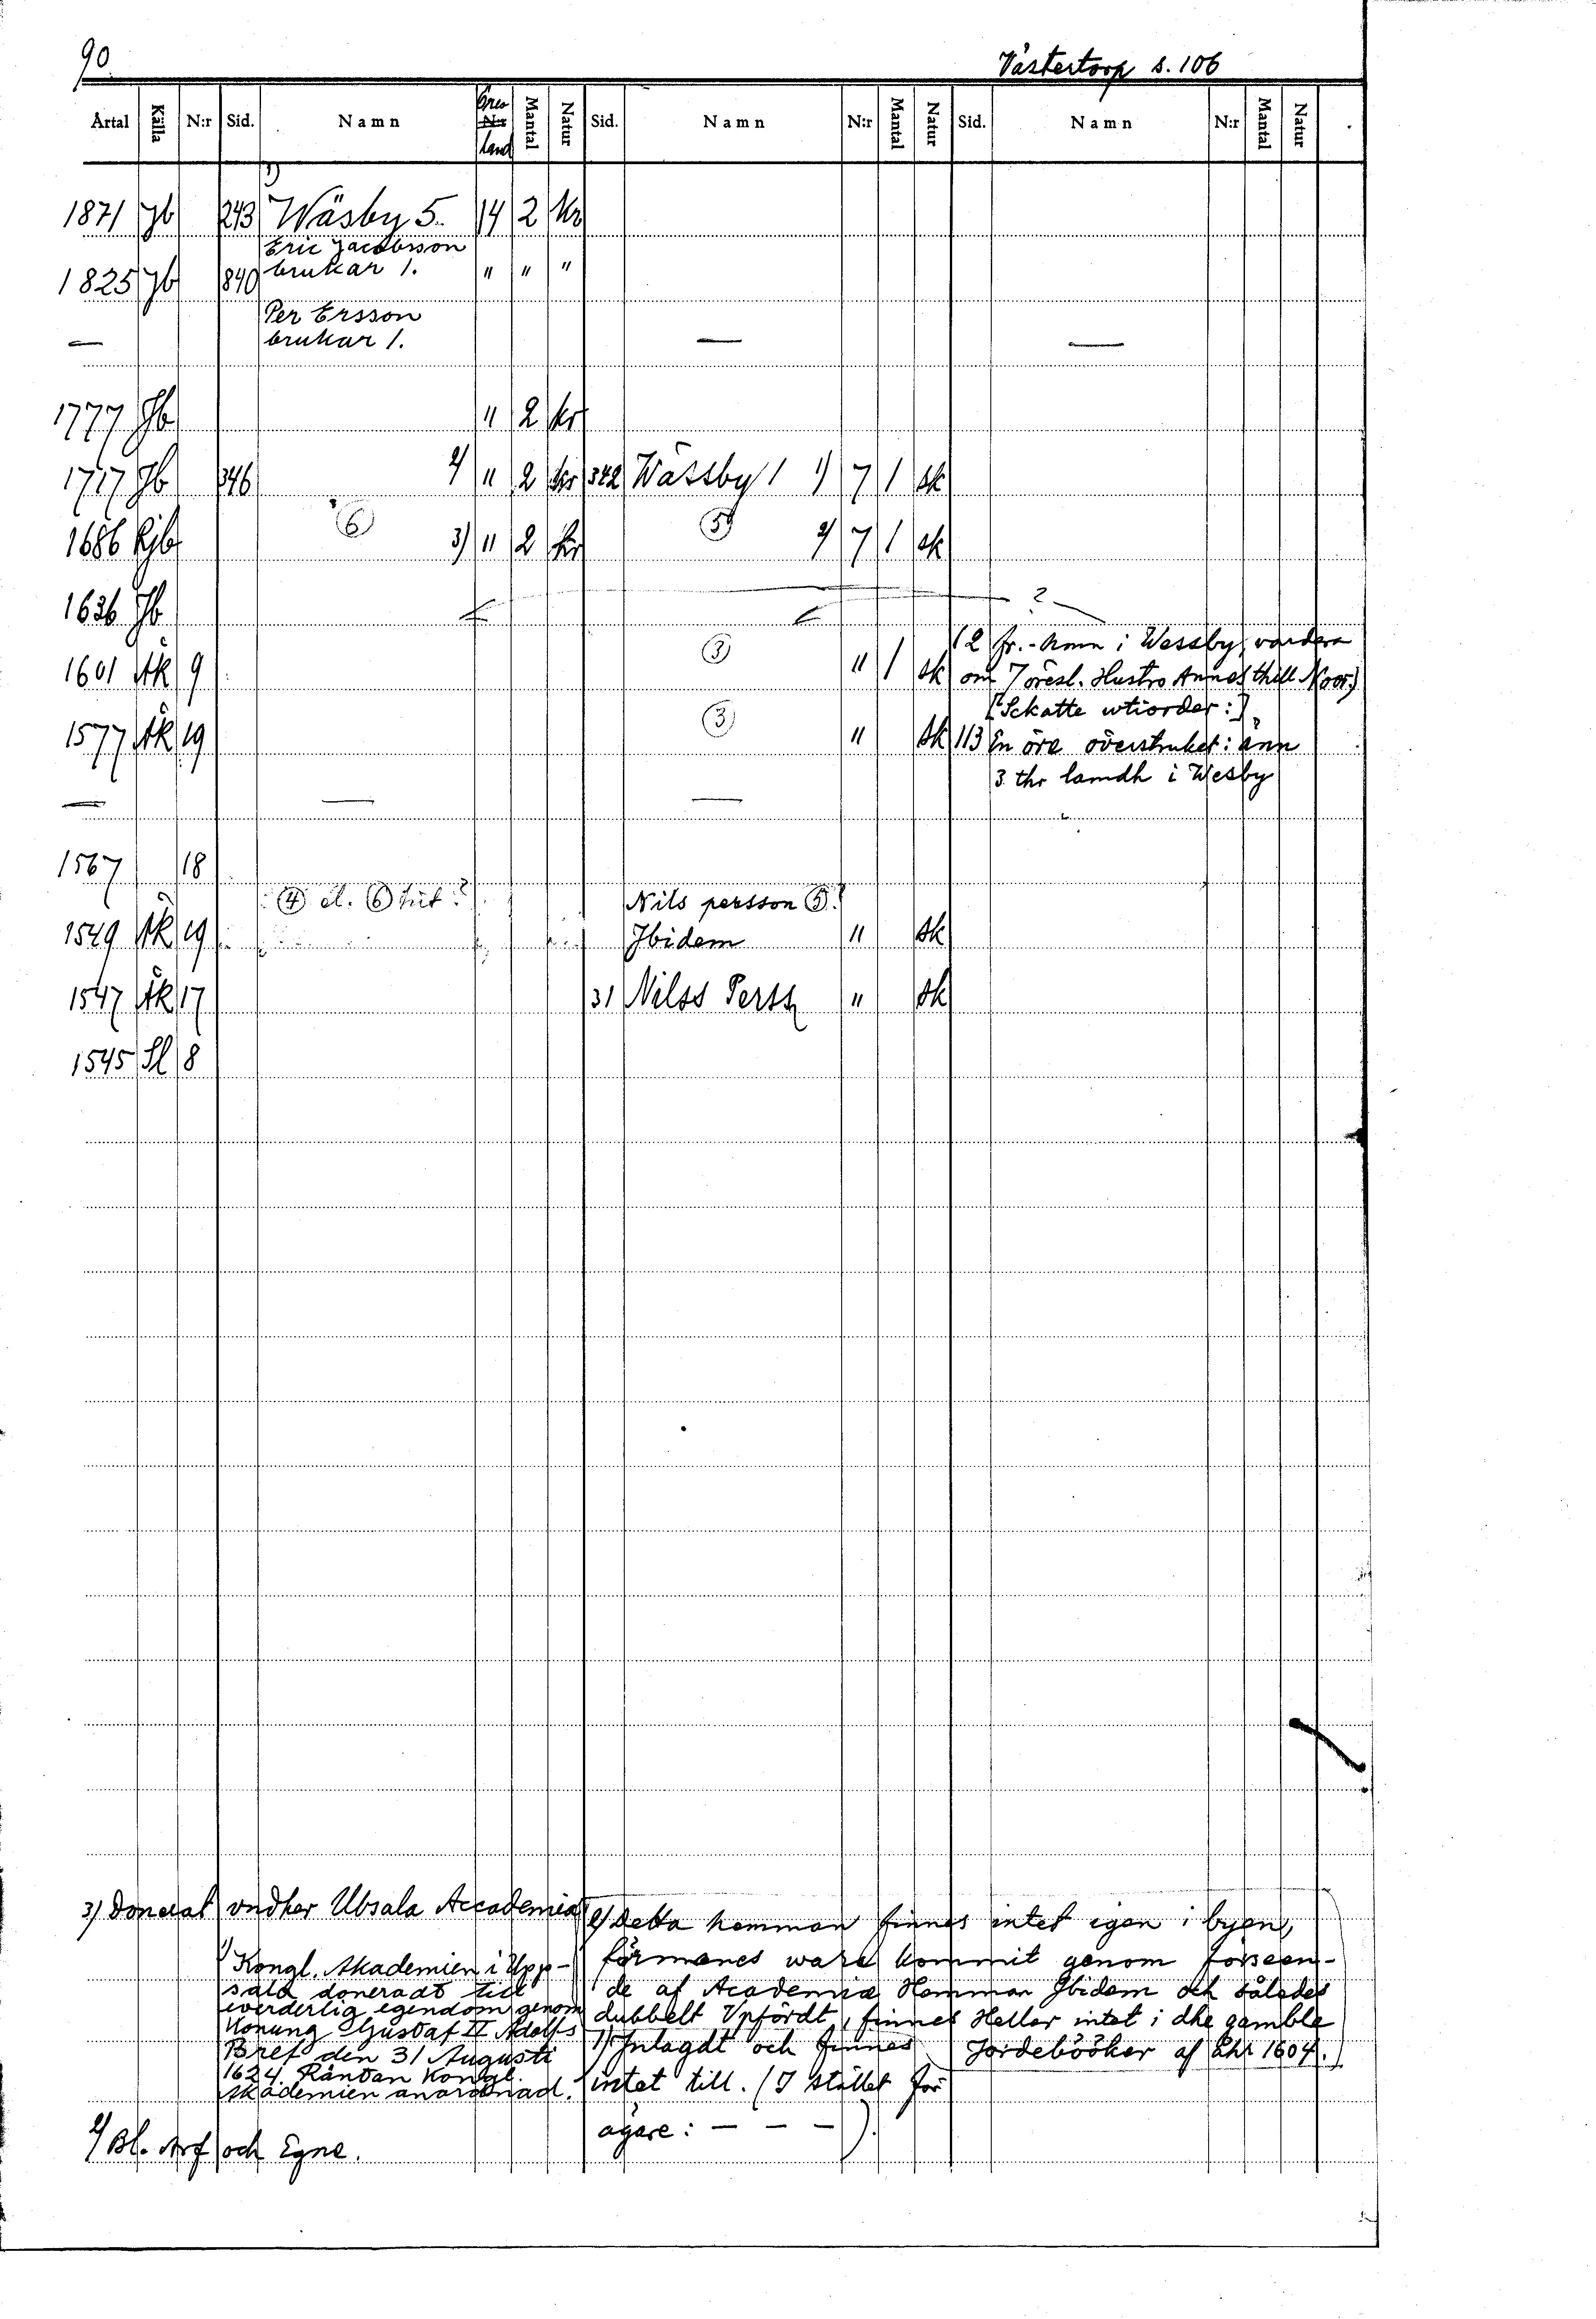 90
Västertorp s. 106
Årtal Källa N:r Sid. Namn Öres N:r land Mantal Natur Sid. Namn N:r Mantal Natur Sid. Namn N:r Mantal Natur
1)
1871 Jb 243 Wäsby 5. 14 2 Kr
Eric Jacobsson
1825 Jb 840 brukar 1. " " "
Per Ersson
— brukar 1. — —
1777 Jb " 2 Kr
1717 Jb 346 2) " 2 Kr 342 Wässby 1 1) 7 1 sk
1686 Rjb (6) 3) " 2 Kr (5) 2) 7 1 sk
1636 Jb ?
(2 fr.-hmn i Wessby, vardera
1601 Åk 9 (3) " 1 sk om 7 öresl. Hustro Annes thill Noor)
[Schatte wtiorder:]
1577 Åk 19 (3) " sk 113 En öre överstruket: änn
3 thr lamdh i Wesby
— — —
1567 18
(4) el. (6) hit? Nils persson (5)?
1549 Åk 19 Jbidem " sk
1547 Åk 17 31 Nilss Perss " sk
1545 Sl 8
3) Donerat vndher Ubsala Accademia
1) Kongl. Akademien i Upp-
sala doneradt till
everderlig egendom genom
Konung Gustaf II Adolfs
Bref den 31 Augusti
1624. Räntan Kongl.
Akademien anordnad.
2) Bl. Arf och Egne.
2) Detta hemman finnes intet egen i byen,
förmenes ware kommit genom försеen-
de af Academiæ Hemman Jbidem och således
dubbelt Vpfördt, finnes Heller intet i dhe gamble
Jordebööker af åhr 1604.)
1) Jnlagdt och finnes
intet till. (I stället för
ägare: — — —).